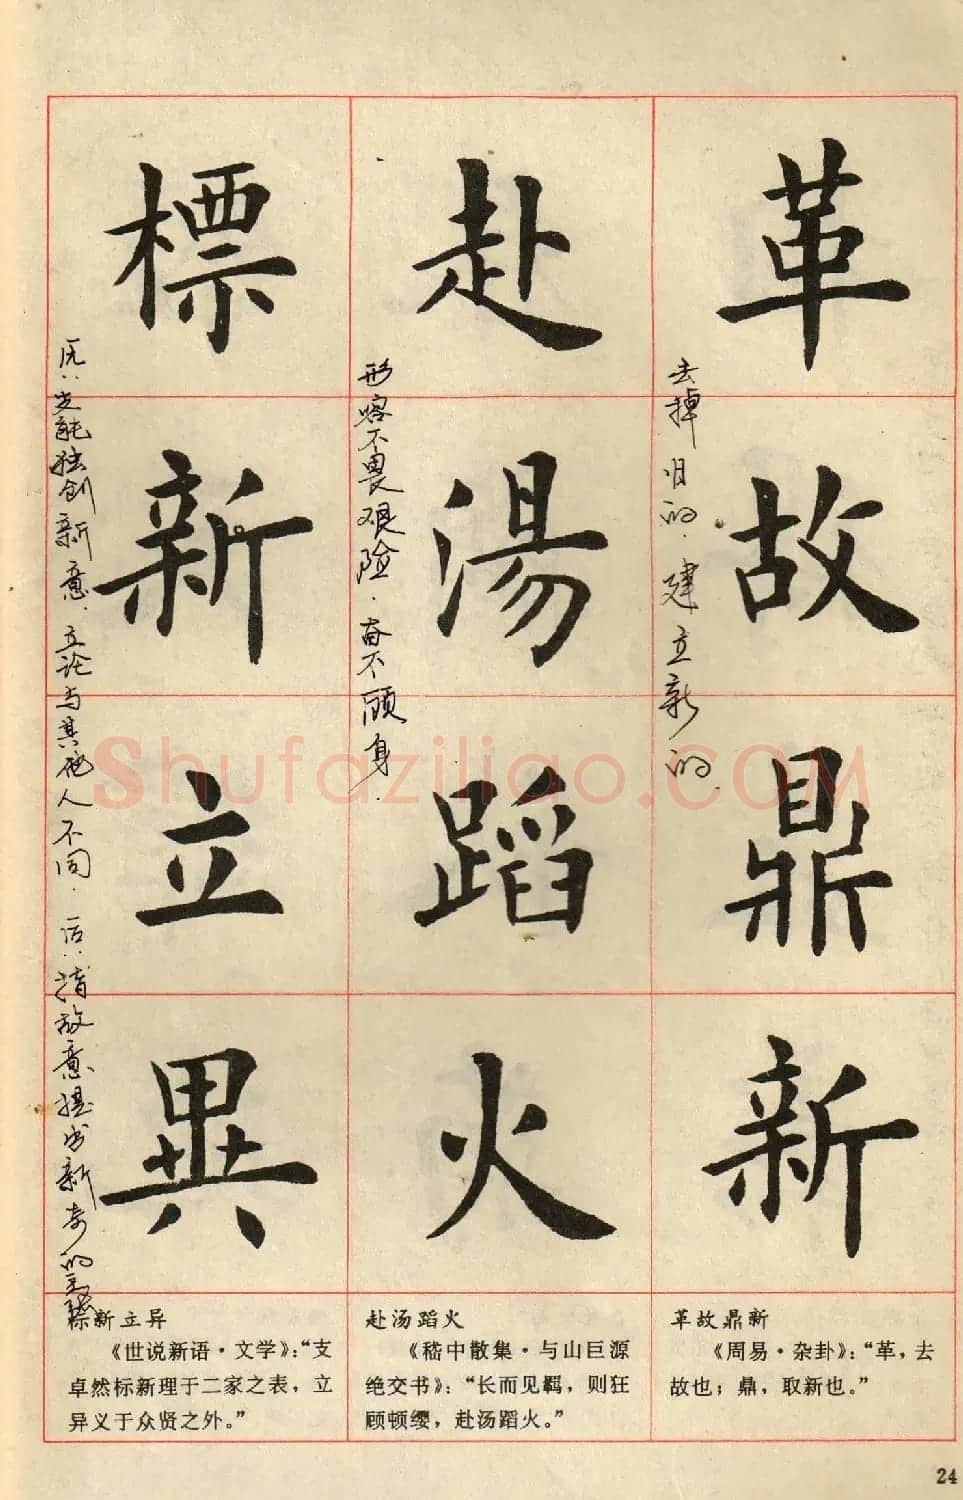 革故鼎新
去掉旧的.建立新的.
赴湯蹈火
形容不畏艰险.奋不顾身.
標新立異
原:支能独创新意.立论与其他人不同.后:指故意提出新奇的主张
革故鼎新
《周易·杂卦》:“革,去
故也;鼎,取新也。”
赴汤蹈火
《嵇中散集·与山巨源
绝交书》:“长而见羁,则狂
顾顿缨,赴汤蹈火。”
标新立异
《世说新语·文学》:“支
卓然标新理于二家之表,立
异义于众贤之外。”
24
Shufaziliao.COM